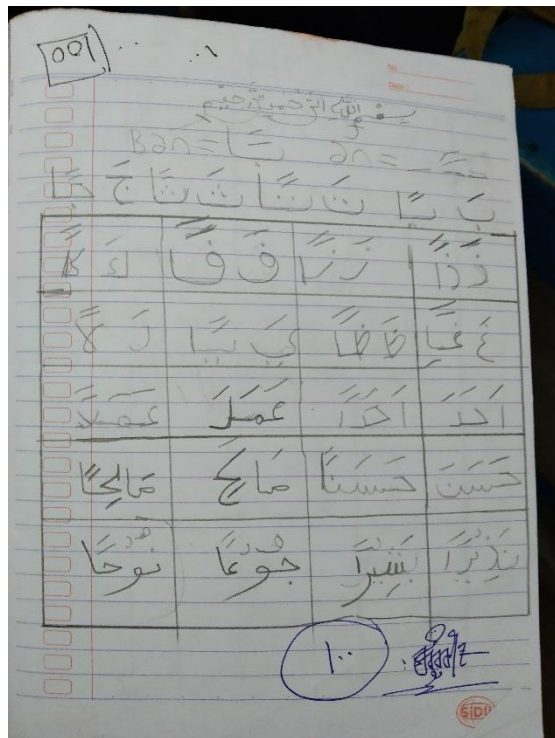 001
No.
Date :
بِسْمِ اللَّهِ الرَّحْمَنِ الرَّحِيْمِ
an = ـًـ Ban = بًا
بَ بًا تَ تًا ثَ ثًا جَ جًا
ذَ ذًا زَ زًا فَ فًا كَ كًا
غَ غًا ظَ ظًا يَ يًا لَ لًا
اَحَدَ اَحَدًا عَمَلَ عَمَلًا
حَسَنَ حَسَنًا مَالِحَ مَالِحًا
نَذِيْرًا بَشِيْرًا جُوْعًا نُوْحًا
١٠٠
SIDU